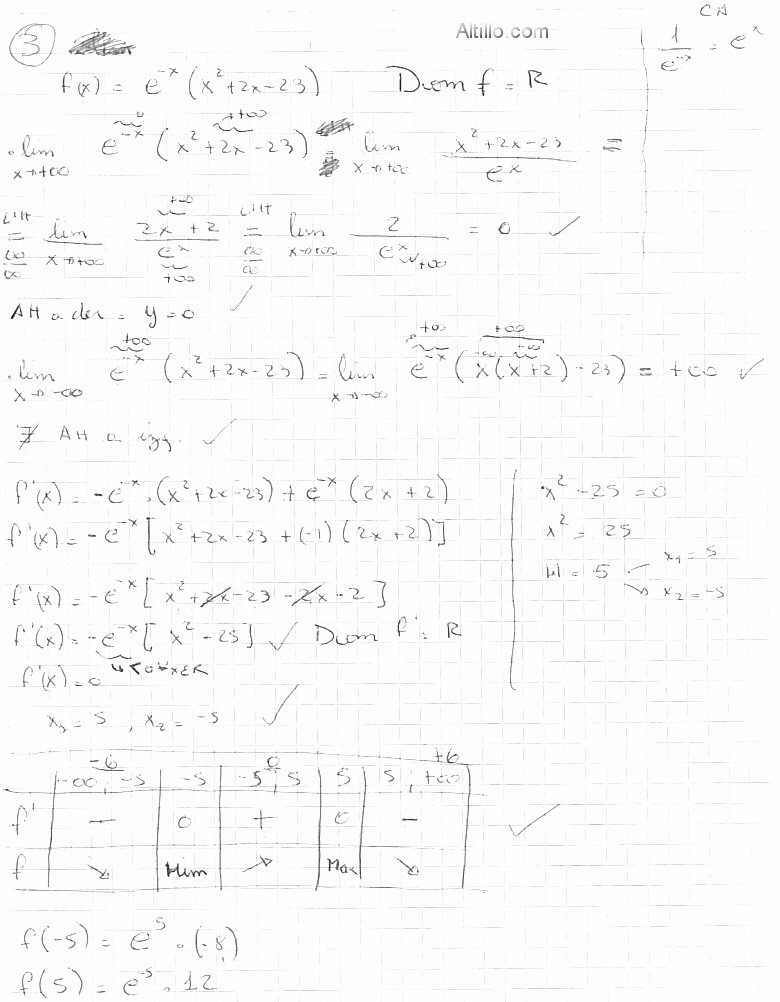 Altillo.com
CA
3
1/e^-x = e^x
f(x) = e^-x (x²+2x-23) Dom f = R
0 +∞
· lim x→+∞ e^-x (x²+2x-23) = lim x→+∞ (x²+2x-23)/e^x =
L'H = ∞/∞ lim x→+∞ (2x+2)/e^x L'H = ∞/∞ lim x→+∞ 2/e^x = 0 ✓
+∞ +∞ →+∞
AH a der = y=0 ✓
+∞ +∞ +∞ -∞ +∞
· lim x→-∞ e^-x (x²+2x-23) = lim x→-∞ e^-x (x(x+2)-23) = +∞ ✓
∄ AH a izq. ✓
f'(x) = -e^-x·(x²+2x-23) + e^-x (2x+2)
f'(x) = -e^-x [x²+2x-23+(-1)(2x+2)]
f'(x) = -e^-x [x²+2x-23-2x-2]
f'(x) = -e^-x [x²-25] ✓ Dom f' = R
<0 ∀x∈R
f'(x)=0
x₁ = 5 , x₂ = -5 ✓
x²-25=0
x² = 25
|x| = 5
x₁=5
x₂=-5
-6 0 +6
-∞;-5 -5 -5;5 5 5;+∞
f' - 0 + 0 - ✓
f ↘ Mim ↗ Max ↘
f(-5) = e^5 · (-8)
f(5) = e^-5 · 12